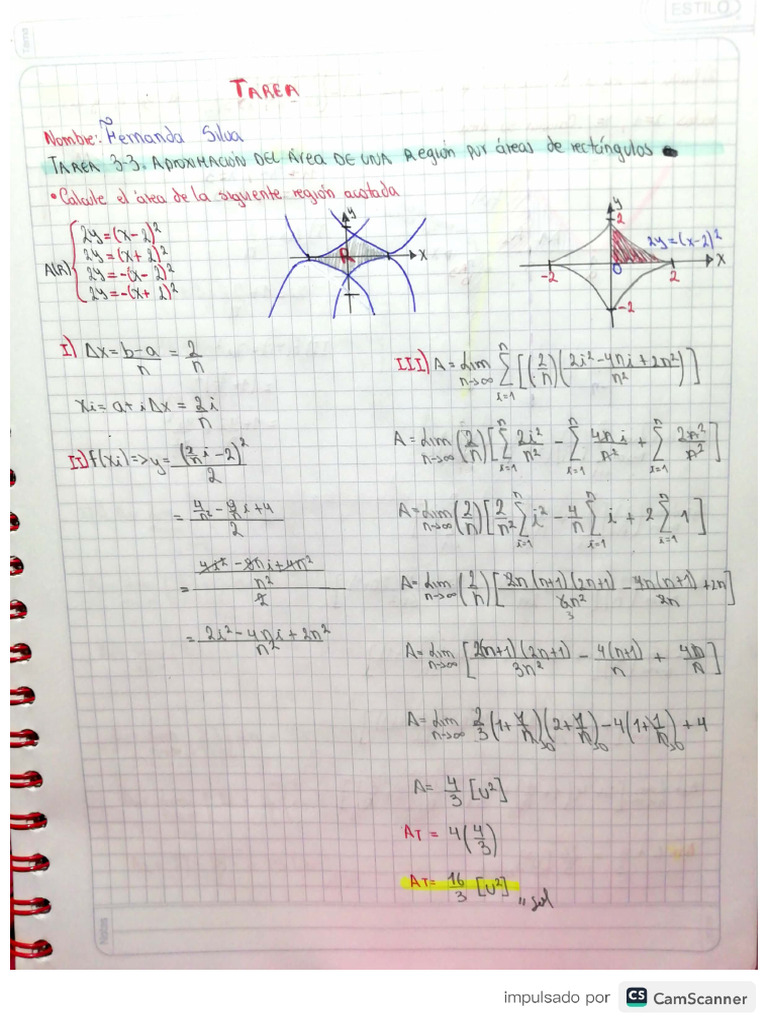 ESTILO
Tema
TAREA
Nombre: Fernanda Silva
TAREA 3-3. APROXIMACIÓN DEL ÁREA DE UNA Región por áreas de rectángulos
• Calcule el área de la siguiente región acotada
A(R) { 2y=(x-2)²
2y=(x+2)²
2y=-(x-2)²
2y=-(x+2)²
y
x
R
y
2
2y=(x-2)²
-2 0 2 x
-2
I) Δx = b-a/n = 2/n
xi = a+iΔx = 2i/n
II) f(xi) => y = (2/n i - 2)²/2
= 4/n² - 8/n i + 4 / 2
= 4i² - 8ni + 4n² / n² / 2
= 2i² - 4ni + 2n² / n²
III) A = lim n→∞ Σ i=1 n [(2/n)(2i² - 4ni + 2n² / n²)]
A = lim n→∞ (2/n) [Σ i=1 n 2i²/n² - Σ i=1 n 4ni/n² + Σ i=1 n 2n²/n²]
A = lim n→∞ (2/n) [2/n² Σ i=1 n i² - 4/n Σ i=1 n i + 2 Σ i=1 n 1]
A = lim n→∞ (2/n) [2n(n+1)(2n+1)/6n² 3 - 4n(n+1)/2n + 2n]
A = lim n→∞ [2(n+1)(2n+1)/3n² - 4(n+1)/n + 4n/n]
A = lim n→∞ 2/3 (1+1/n)→0 (2+1/n)→0 - 4(1+1/n)→0 + 4
A = 4/3 [u²]
AT = 4(4/3)
AT = 16/3 [u²] // sol
Notas
impulsado por CS CamScanner